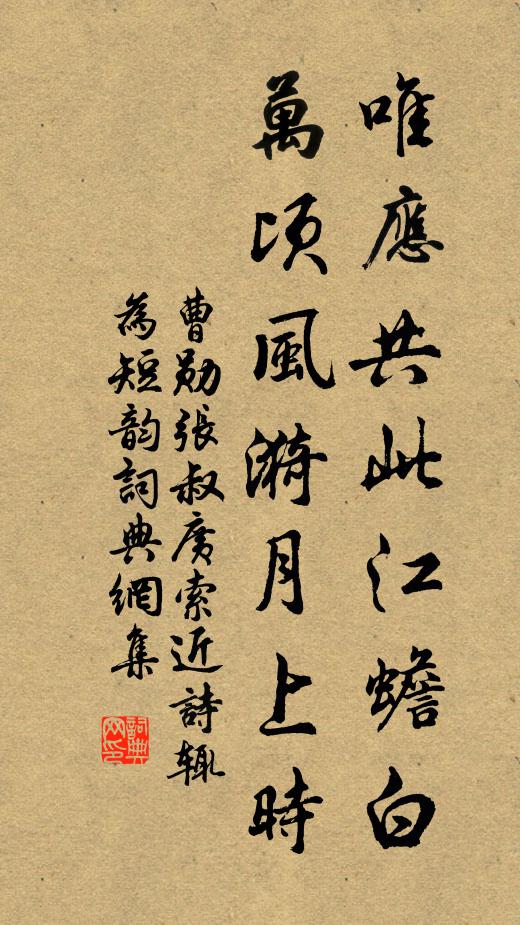 唯應共此江蟾白
萬頃風漪月上時
曹勋張叔廣索近詩辄
為短韵詞典網集
詞典
网印